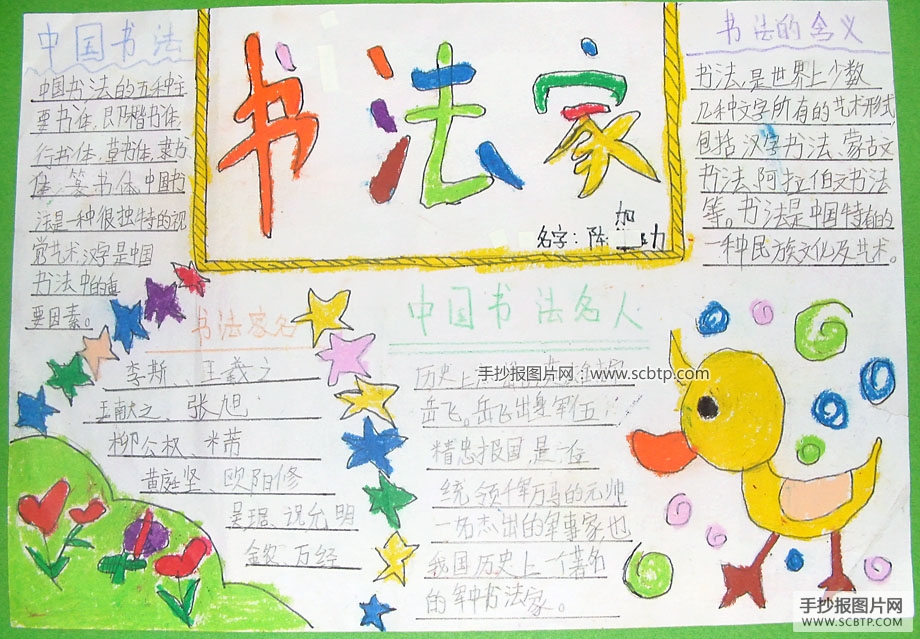 中国书法
中国书法的五种主
要书体,即楷书体,
行书体,草书体,隶书
体,篆书体.中国书
法是一种很独特的视
觉艺术,汉字是中国
书法中的重
要因素。
书法家
名字:陈加助
书法的含义
书法,是世界上少数
几种文字所有的艺术形式,
包括汉字书法、蒙古文
书法、阿拉伯文书法
等。书法是中国特有的
一种民族文化及艺术。
书法家名
李斯、王羲之
王献之、张旭
柳公权、米芾
黄庭坚、欧阳修
吴琚、祝允明
金农、万经
中国书法名人
历史上
岳飞。岳飞出身军伍
精忠报国,是一位
统领千军万马的元帅
一名杰出的军事家,也
我国历史上一个著名
的军中书法家。
手抄报图片网:www.scbtp.com
手抄报图片网
WWW.SCBTP.COM